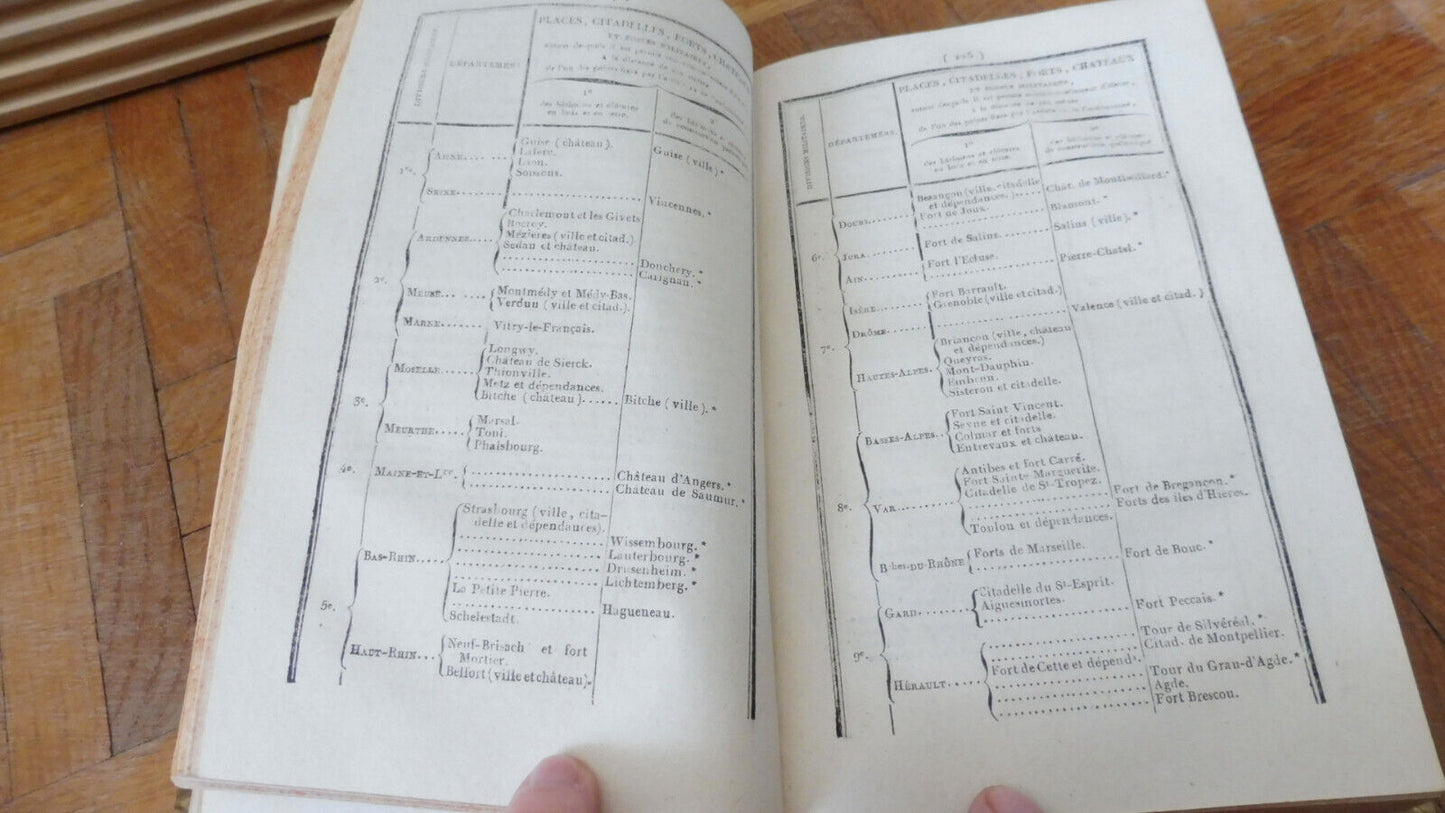 DIVISIONS MILITAIRES
DÉPARTEMENS.
PLACES, CITADELLES, FORTS, CHATEAUX
ET POSTES MILITAIRES,
autour desquels il est permis
à la distance de
de l'un des points fixés par
1º
des bâtimens et clôtures
en bois et en terre.
2º
des bâtimens
de construction
1re.
AISNE....
Guise (château).
Guise (ville).*
Lafere.
Laon.
Soissons.
SEINE....
Vincennes.*
2e.
ARDENNES....
Charlemont et les Givets
Rocroy.
Mézières (ville et citad.)
Sedan et château.
Donchery.*
Carignan.*
MEUSE....
Montmédy et Médy-Bas.
Verdun (ville et citad.)
MARNE.......
Vitry-le-Français.
3e.
MOSELLE.....
Longwy.
Château de Sierck.
Thionville.
Metz et dépendances.
Bitche (château)...... Bitche (ville).*
MEURTHE.....
Marsal.
Toul.
Phalsbourg.
4e.
MAINE-ET-Lre.
Château d'Angers.*
Château de Saumur.*
5e.
BAS-RHIN....
Strasbourg (ville, cita-
delle et dépendances).
Wissembourg.*
Lauterbourg.*
Drusenheim.*
Lichtemberg.*
La Petite Pierre.
Hagueneau.
Schelestadt.
HAUT-RHIN...
Neuf-Brisach et fort
Mortier.
Belfort (ville et château).
DIVISIONS MILITAIRES
DÉPARTEMENS.
PLACES, CITADELLES, FORTS, CHATEAUX
ET POSTES MILITAIRES,
autour desquels il est permis
à la distance de
de l'un des points fixés par l'article
1º
des bâtimens et clôtures
en bois et en terre.
2º
des bâtimens et clôtures
de construction quelconque
6e.
DOUBS.......
Besançon (ville, citadelle
et dépendances.).... Chât. de Montbelliard.*
Fort de Joux.
Blamont.*
JURA........
Fort de Salins.
Salins (ville).*
AIN.........
Fort l'Ecluse.
Pierre-Chatel.*
7e.
ISÈRE.......
Fort Barrault.
Grenoble (ville et citad.)
DRÔME.......
Valence (ville et citad.)
HAUTES-ALPES.
Briançon (ville, château
et dépendances.)
Queyras.
Mont-Dauphin.
Embrun.
Sisteron et citadelle.
8e.
BASSES-ALPES..
Fort Saint Vincent.
Seyne et citadelle.
Colmar et forts
Entrevaux et château.
VAR.........
Antibes et fort Carré.
Fort Sainte Marguerite.
Citadelle de St-Tropez.
Fort de Bregançon.*
Forts des îles d'Hières.
Toulon et dépendances.
B.hes-DU-RHÔNE
Forts de Marseille.
Fort de Bouc.*
9e.
GARD........
Citadelle du St-Esprit.
Aiguesmortes.
Fort Peccais.*
HÉRAULT.....
Tour de Silvéréal.*
Citad. de Montpellier.
Fort de Cette et dépend.s
Tour du Grau-d'Agde.*
Agde.
Fort Brescou.